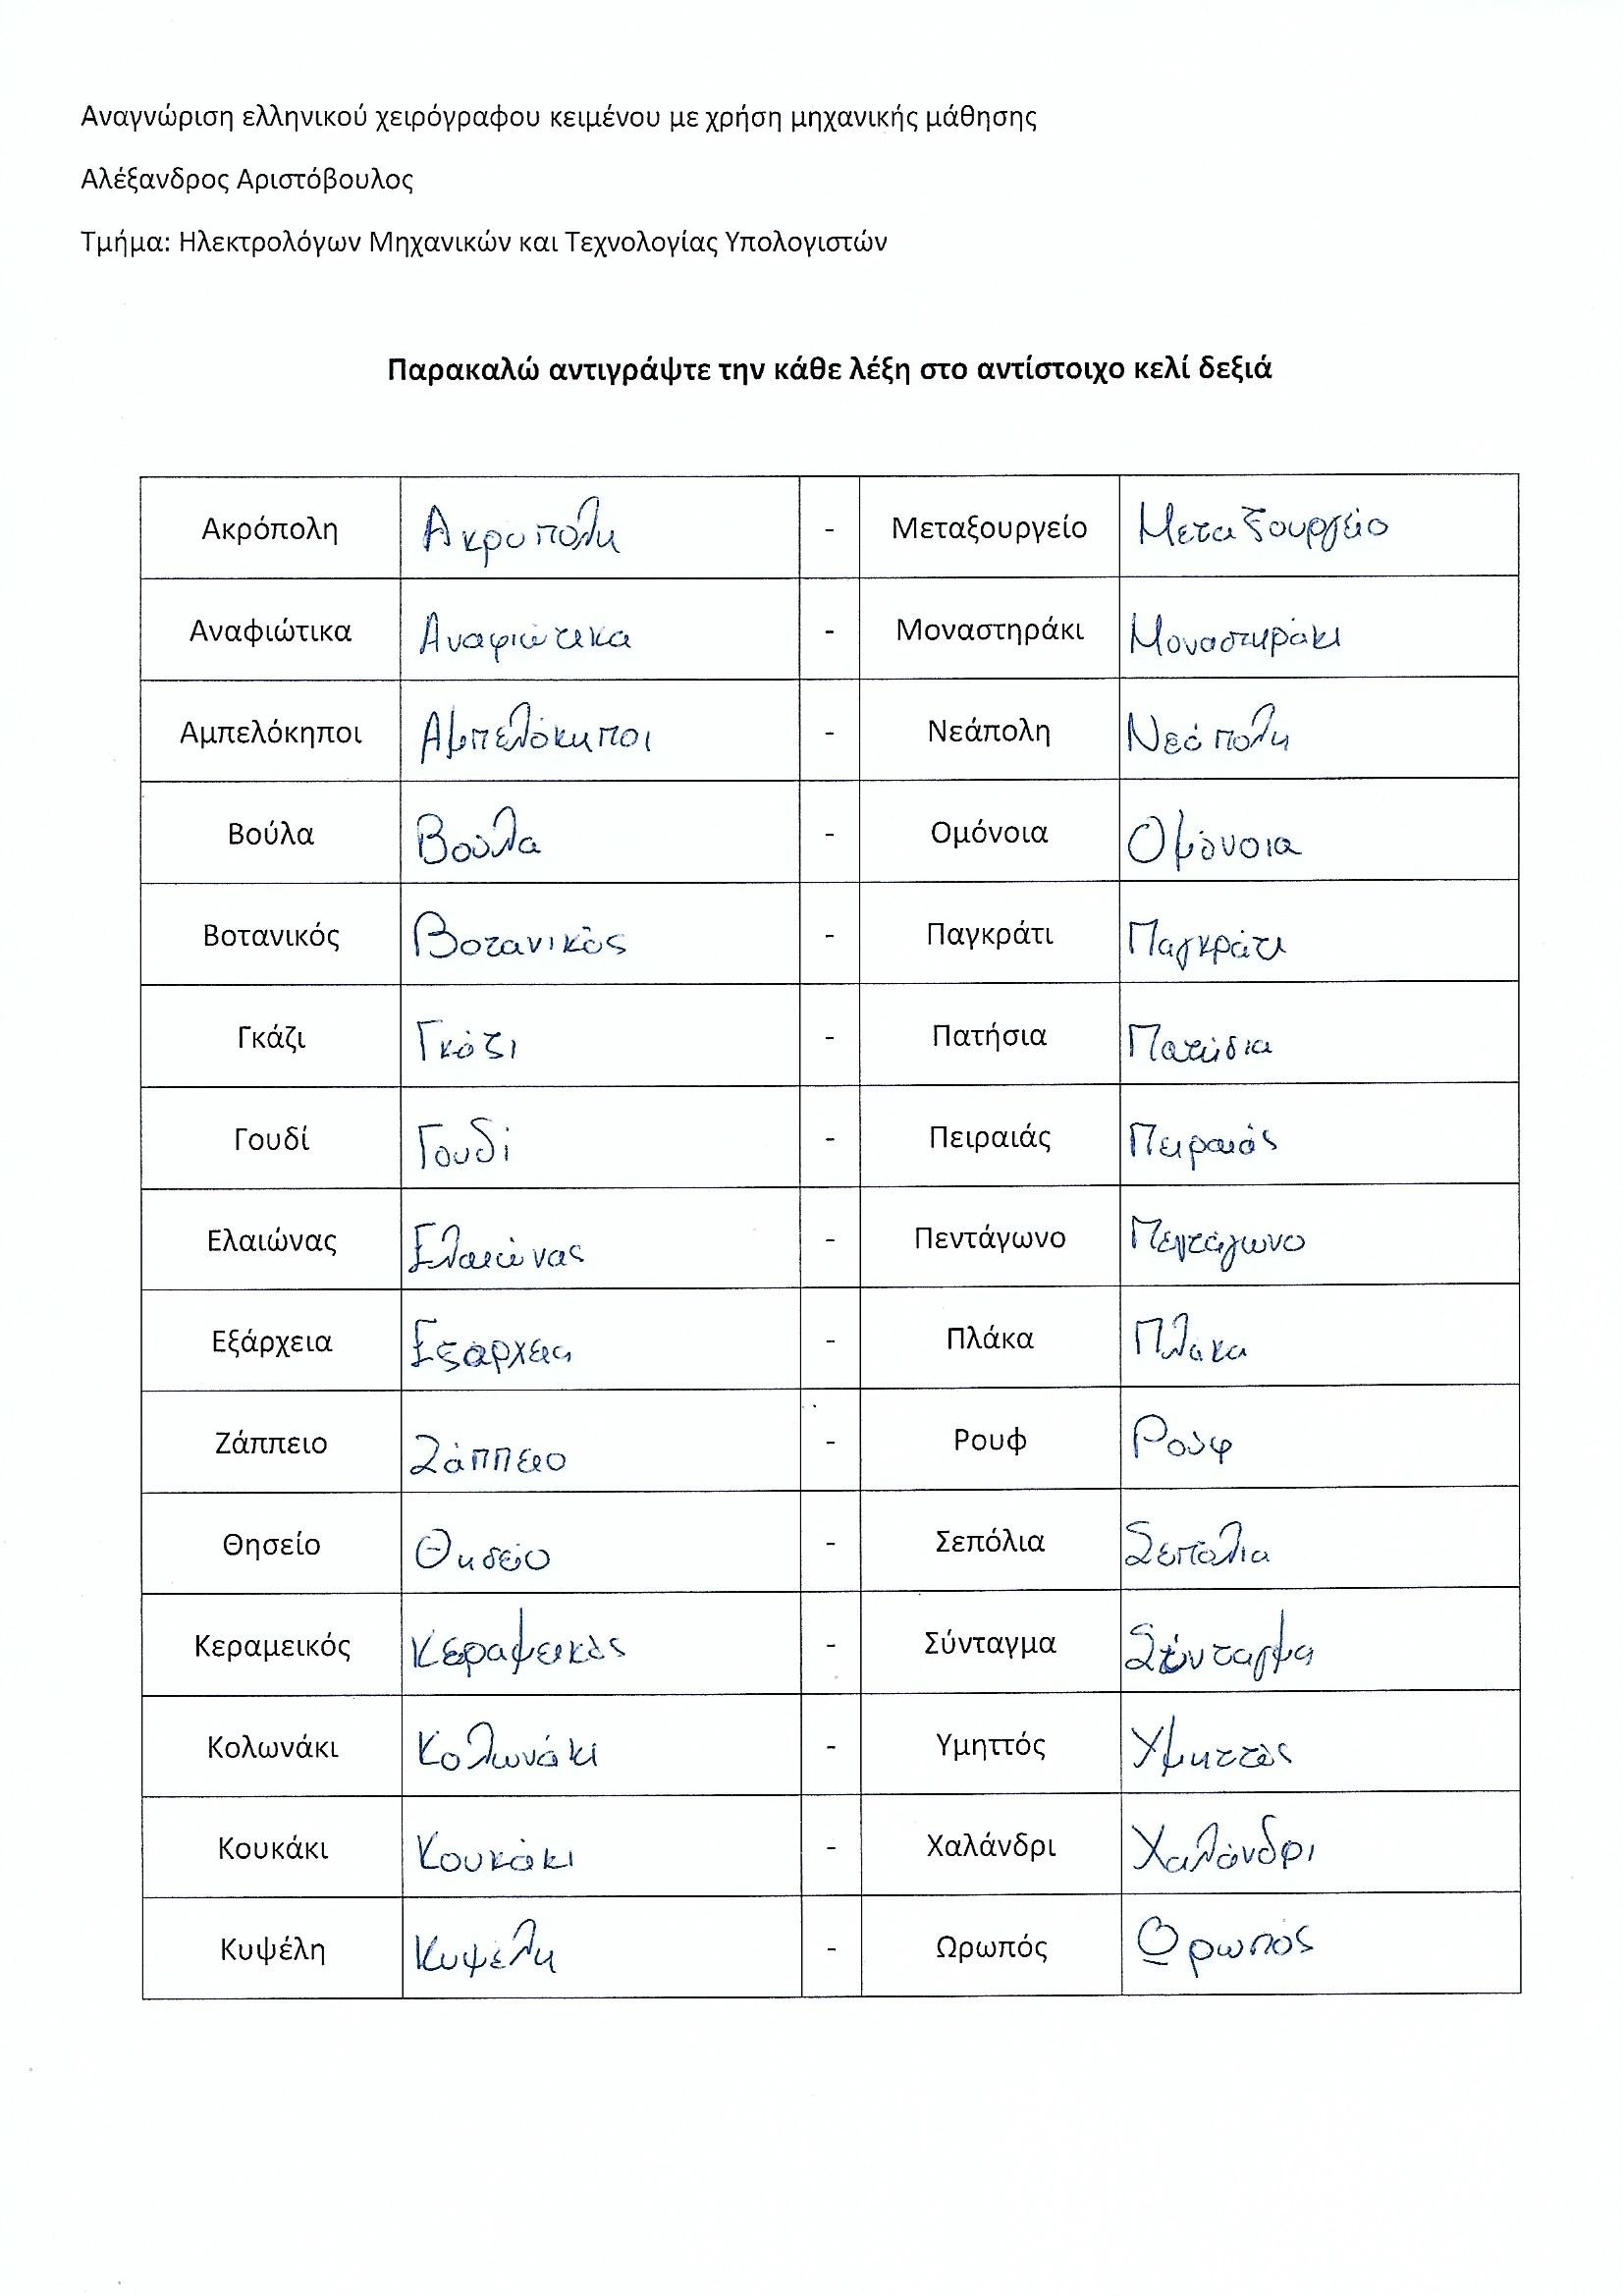 Αναγνώριση ελληνικού χειρόγραφου κειμένου με χρήση μηχανικής μάθησης
Αλέξανδρος Αριστόβουλος
Τμήμα: Ηλεκτρολόγων Μηχανικών και Τεχνολογίας Υπολογιστών
Παρακαλώ αντιγράψτε την κάθε λέξη στο αντίστοιχο κελί δεξιά
Ακρόπολη Ακροπολη - Μεταξουργείο Μεταξουργείο
Αναφιώτικα Αναφιώτικα - Μοναστηράκι Μοναστηράκι
Αμπελόκηποι Αμπελόκηποι - Νεάπολη Νεάπολη
Βούλα Βούλα - Ομόνοια Ομόνοια
Βοτανικός Βοτανικός - Παγκράτι Παγκράτι
Γκάζι Γκάζι - Πατήσια Πατήσια
Γουδί Γουδί - Πειραιάς Πειραιάς
Ελαιώνας Ελαιώνας - Πεντάγωνο Πεντάγωνο
Εξάρχεια Εξάρχεια - Πλάκα Πλάκα
Ζάππειο Ζάππειο - Ρουφ Ρούφ
Θησείο Θησείο - Σεπόλια Σεπόλια
Κεραμεικός Κεραμεικός - Σύνταγμα Σύνταγμα
Κολωνάκι Κολωνάκι - Υμηττός Υμηττός
Κουκάκι Κουκάκι - Χαλάνδρι Χαλάνδρι
Κυψέλη Κυψέλη - Ωρωπός Ωρωπός